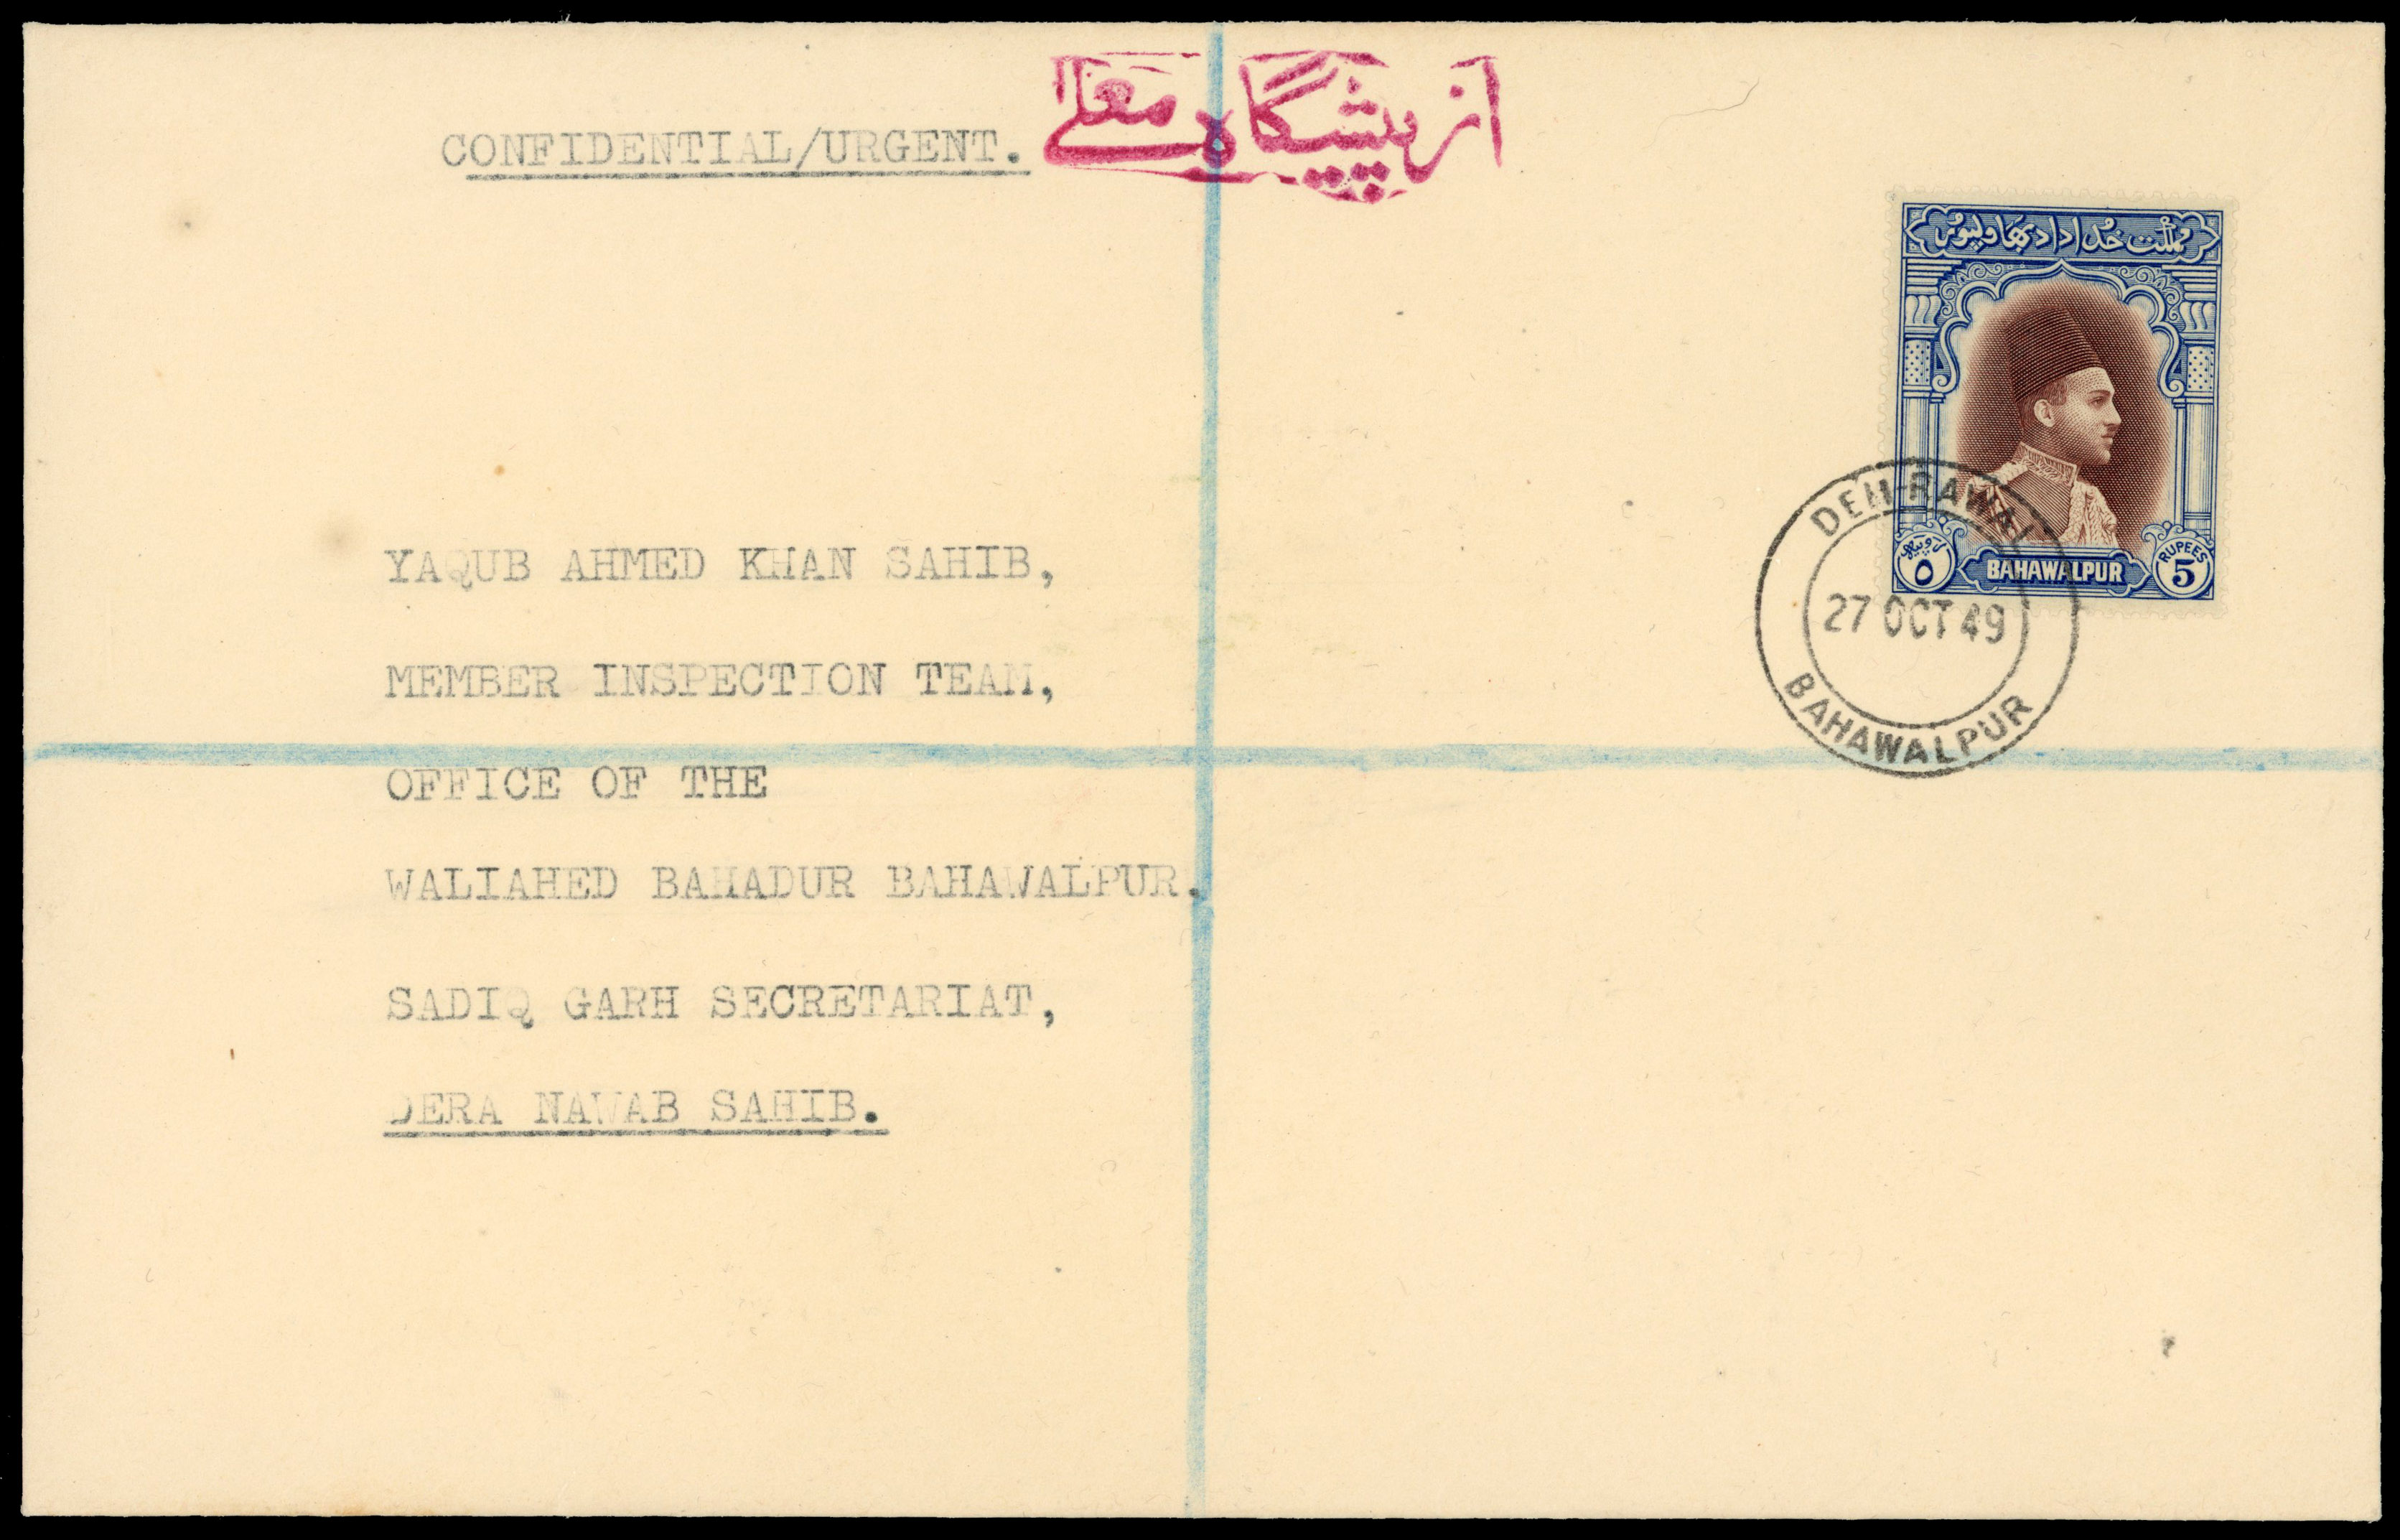 CONFIDENTIAL/URGENT.
از پیشگاہ معلےٰ
مملکت خداداد بہاولپور
۵ روپیہ
BAHAWALPUR
RUPEES
5
DEH-RAWAL
27 OCT 49
BAHAWALPUR
YAQUB AHMED KHAN SAHIB,
MEMBER INSPECTION TEAM,
OFFICE OF THE
WALIAHED BAHADUR BAHAWALPUR.
SADIQ GARH SECRETARIAT,
DERA NAWAB SAHIB.